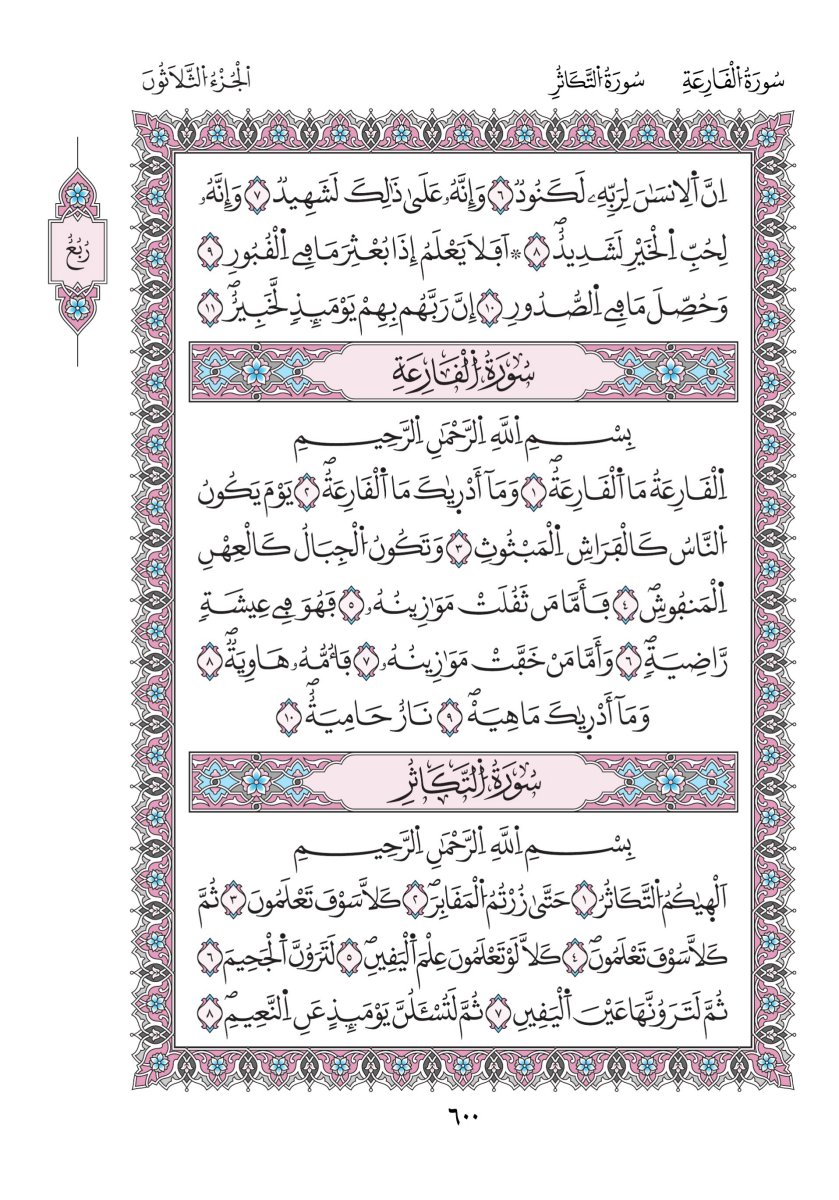 سُورَةُ اُ۬لْقَارِعَةِ سُورَةُ اُ۬لتَّكَاثُرِ اُ۬لْجُزْءُ اُ۬لثَّلَاثُونَ
اِنَّ اَ۬لِانسَٰنَ لِرَبِّهِۦ لَكَنُودٞ ٦ وَإِنَّهُۥ عَلَىٰ ذَٰلِكَ لَشَهِيدٞ ٧ وَإِنَّهُۥ
لِحُبِّ اِ۬لْخَيْرِ لَشَدِيدٌۖ ٨ ۞ اَفَلَا يَعْلَمُ إِذَا بُعْثِرَ مَا فِے اِ۬لْقُبُورِ ٩
رُبُعُ
وَحُصِّلَ مَا فِے اِ۬لصُّدُورِ ١٠ إِنَّ رَبَّهُم بِهِمْ يَوْمَئِذٖ لَّخَبِيرُۢۖ ١١
سُورَةُ اُ۬لْقَارِعَةِ
بِسْمِ اِ۬للَّهِ اِ۬لرَّحْمَٰنِ اِ۬لرَّحِيمِ
اِ۬لْقَارِعَةُ مَا اَ۬لْقَارِعَةُۖ ١ وَمَآ أَدْرٜيٰكَ مَا اَ۬لْقَارِعَةُۖ ٢ يَوْمَ يَكُونُ
اُ۬لنَّاسُ كَالْفَرَاشِ اِ۬لْمَبْثُوثِ ٣ وَتَكُونُ اُ۬لْجِبَالُ كَالْعِهْنِ
اِ۬لْمَنفُوشِۖ ٤ فَأَمَّا مَن ثَقُلَتْ مَوَٰزِينُهُۥ ٥ فَهُوَ فِے عِيشَةٖ
رَّاضِيَةٖۖ ٦ وَأَمَّا مَنْ خَفَّتْ مَوَٰزِينُهُۥ ٧ فَأُمُّهُۥ هَاوِيَةٞۖ ٨
وَمَآ أَدْرٜيٰكَ مَا هِيَهْۖ ٩ نَارٌ حَامِيَةٌۖ ١٠
سُورَةُ اُ۬لتَّكَاثُرِ
بِسْمِ اِ۬للَّهِ اِ۬لرَّحْمَٰنِ اِ۬لرَّحِيمِ
اَلْهٜيٰكُمُ اُ۬لتَّكَاثُرُ ١ حَتَّىٰ زُرْتُمُ اُ۬لْمَقَابِرَۖ ٢ كَلَّا سَوْفَ تَعْلَمُونَ ٣ ثُمَّ
كَلَّا سَوْفَ تَعْلَمُونَۖ ٤ كَلَّا لَوْ تَعْلَمُونَ عِلْمَ اَ۬لْيَقِينِۖ ٥ لَتَرَوُنَّ اَ۬لْجَحِيمَ ٦
ثُمَّ لَتَرَوُنَّهَا عَيْنَ اَ۬لْيَقِينِ ٧ ثُمَّ لَتُسْـَٔلُنَّ يَوْمَئِذٍ عَنِ اِ۬لنَّعِيمِۖ ٨
٦٠٠